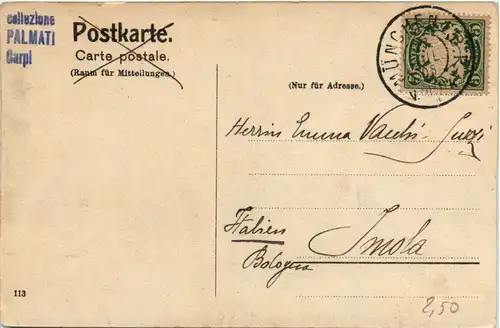 collezione
PALMATI
Carpi
Postkarte.
Carte postale.
(Raum für Mitteilungen.)
(Nur für Adresse.)
MÜNCHEN
Emma
Italien
Imola
Bologna
113
2,50